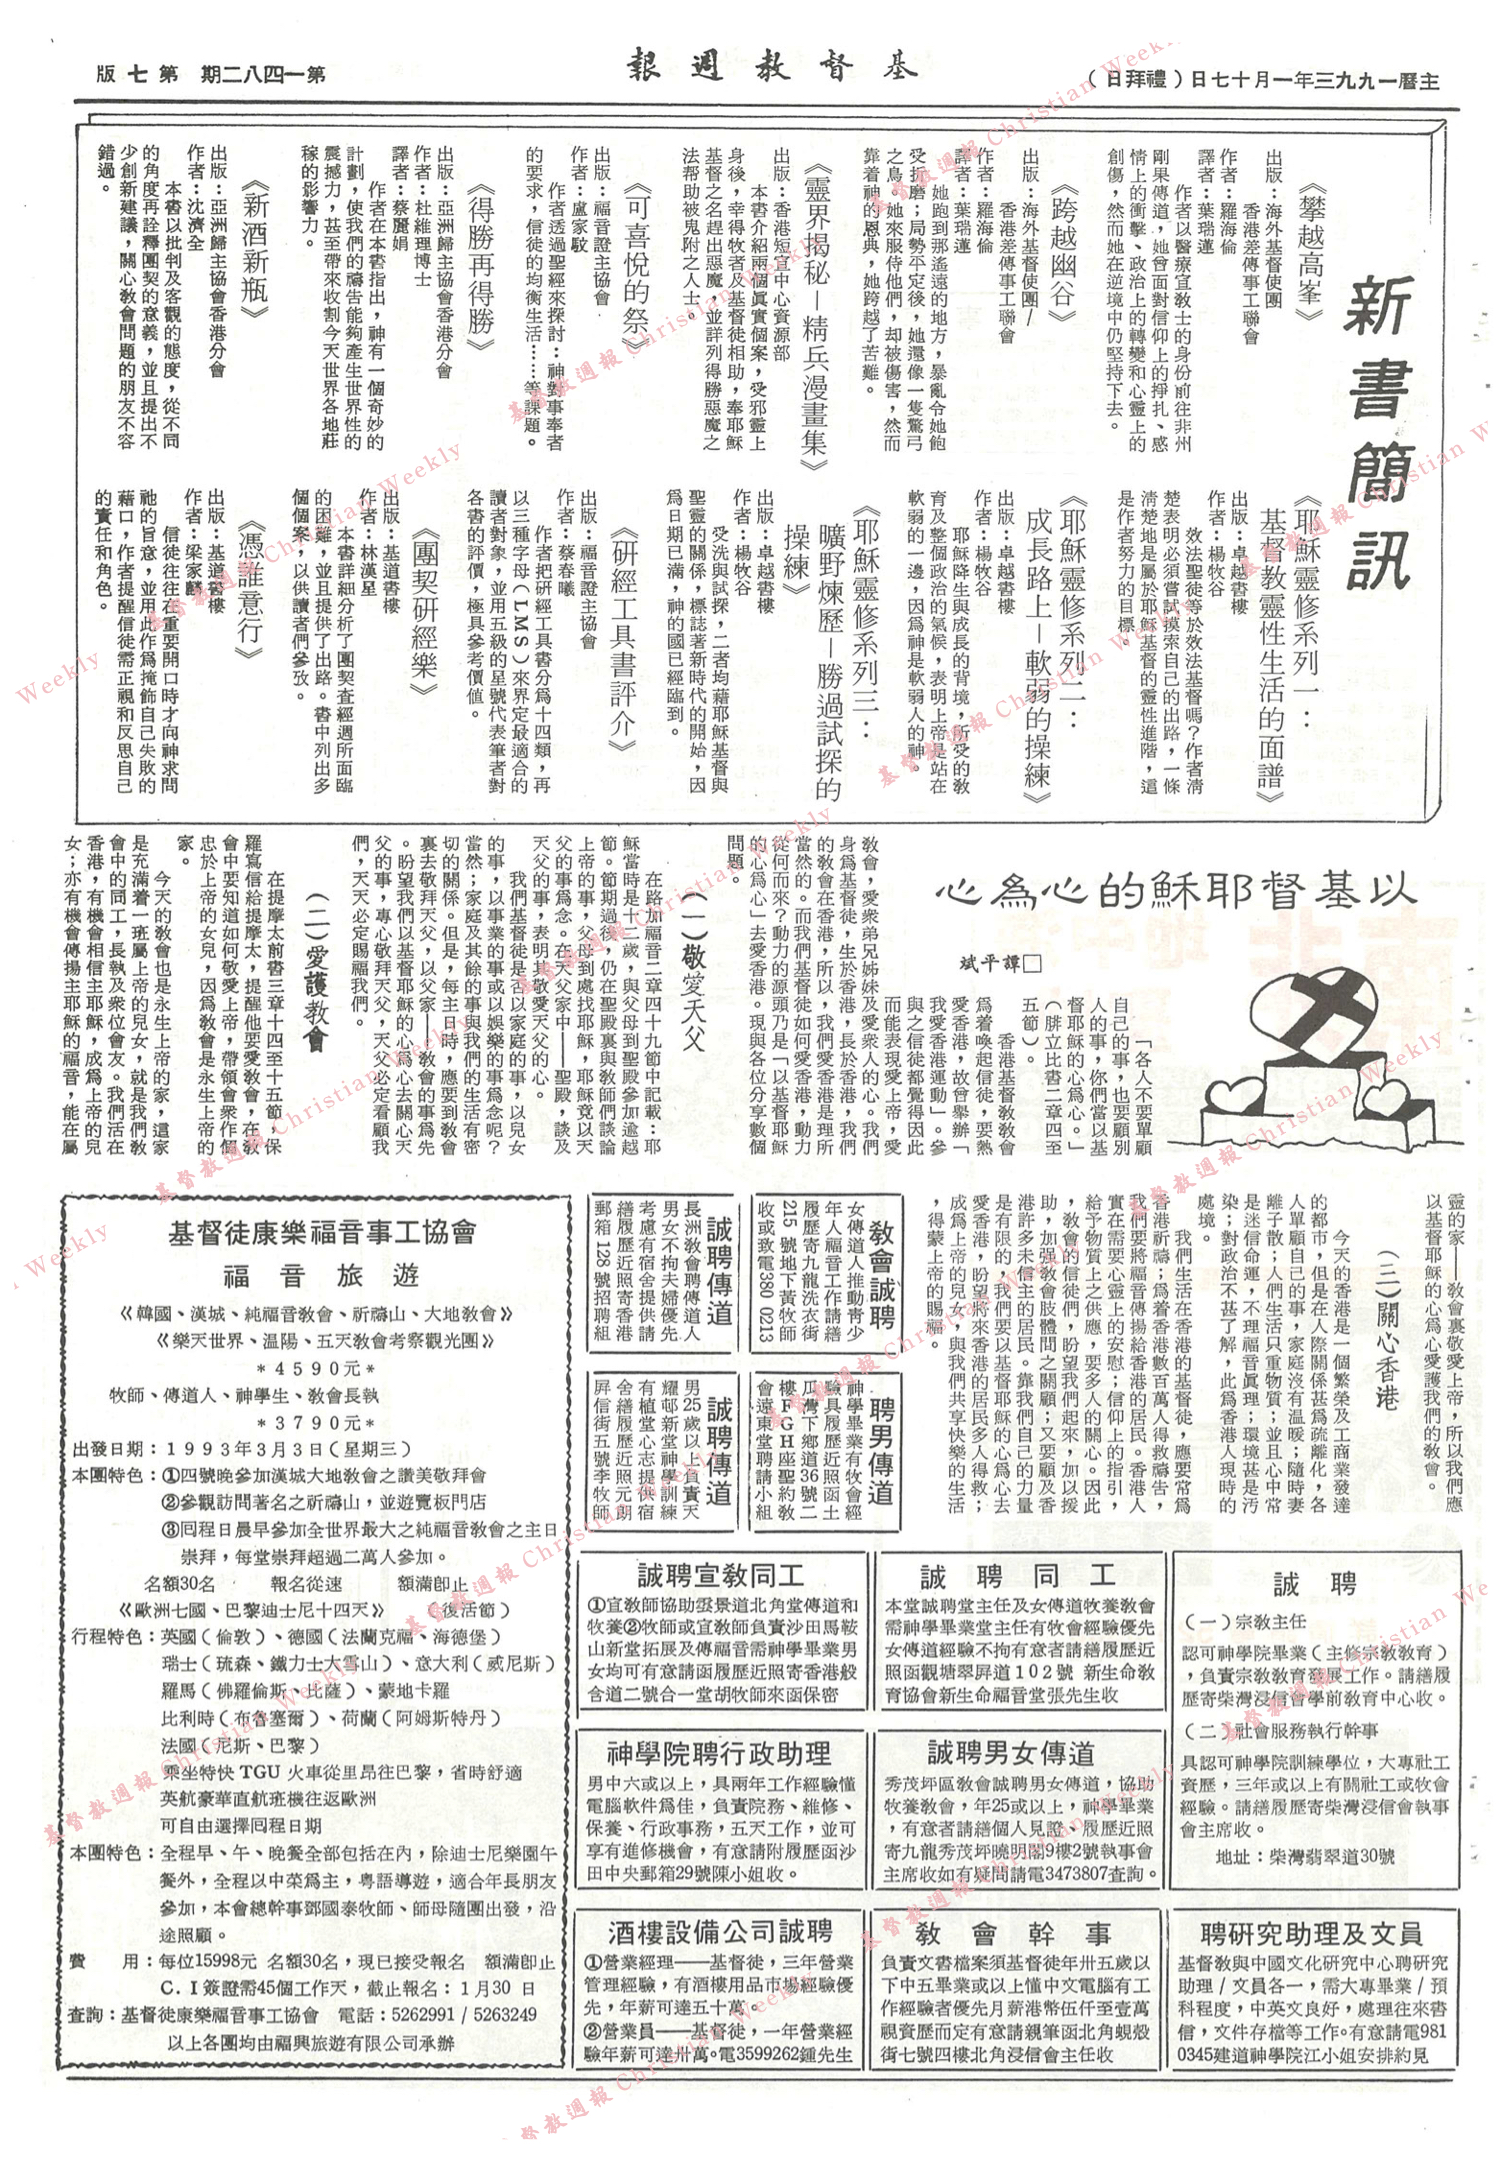 主曆一九九三年一月十七日（禮拜日）
基督教週報
第一四八二期　第七版
新書簡訊
《攀越高峯》
出版：海外基督使團
香港差傳事工聯會
作者：羅海倫
譯者：葉瑞蓮
作者以醫療宣教士的身份前往非州
剛果傳道，她曾面對信仰上的掙扎、感
情上的衝擊、政治上的轉變和心靈上的
創傷，然而她在逆境中仍堅持下去。
《跨越幽谷》
出版：海外基督使團/
香港差傳事工聯會
作者：羅海倫
譯者：葉瑞蓮
她跑到那遙遠的地方，暴亂令她飽
受折磨；局勢平定後，她還像一隻驚弓
之鳥。她來服侍他們，却被傷害，然而
靠着神的恩典，她跨越了苦難。
《靈界揭秘－精兵漫畫集》
出版：香港短宣中心資源部
本書介紹兩個眞實個案，受邪靈上
身後，幸得牧者及基督徒相助，奉耶穌
基督之名趕出惡魔，並詳列得勝惡魔之
法帮助被鬼附之人士。
《可喜悅的祭》
出版：福音證主協會
作者：盧家馭
作者透過聖經來探討：神對事奉者
的要求，信徒的均衡生活……等課題。
《得勝再得勝》
出版：亞洲歸主協會香港分會
作者：杜維理博士
譯者：蔡麗娟
作者在本書指出，神有一個奇妙的
計劃，使我們的禱告能夠產生世界性的
震撼力，甚至帶來收割今天世界各地莊
稼的影響力。
《新酒新瓶》
出版：亞洲歸主協會香港分會
作者：沈濟全
本書以批判及客觀的態度，從不同
的角度再詮釋團契的意義，並且提出不
少創新建議，關心教會問題的朋友不容
錯過。
《耶穌靈修系列一：
基督教靈性生活的面譜》
出版：卓越書樓
作者：楊牧谷
效法聖徒等於效法基督嗎？作者淸
楚表明必須嘗試摸索自己的出路，一條
淸楚地是屬於耶穌基督的靈性進階，這
是作者努力的目標。
《耶穌靈修系列二：
成長路上－軟弱的操練》
出版：卓越書樓
作者：楊牧谷
耶穌降生與成長的背境，所受的敎
育及整個政治的氣候，表明上帝是站在
軟弱的一邊，因爲神是軟弱人的神。
《耶穌靈修系列三：
曠野煉歷－勝過試探的
操練》
出版：卓越書樓
作者：楊牧谷
受洗與試探，二者均藉耶穌基督與
聖靈的關係，標誌著新時代的開始，因
爲日期已滿，神的國已經臨到。
《硏經工具書評介》
出版：福音證主協會
作者：蔡春曦
作者把硏經工具書分爲十四類，再
以三種字母（LMS）來界定最適合的
讀者對象，並用五級的星號代表筆者對
各書的評價，極具參考價值。
《團契硏經樂》
出版：基道書樓
作者：林漢星
本書詳細分析了團契查經週所面臨
的困難，並且提供了出路。書中列出多
個個案，以供讀者們參攷。
《憑誰意行》
出版：基道書樓
作者：梁家麟
信徒往往在重要開口時才向神求問
祂的旨意，並用此作爲掩飾自己失敗的
藉口，作者提醒信徒需正視和反思自己
的責任和角色。
以基督耶穌的心爲心
□譚平斌
「各人不要單顧
自己的事，也要顧別
人的事，你們當以基
督耶穌的心爲心。」
（腓立比書二章四至
五節）。
香港基督敎敎會
爲着喚起信徒，要熱
愛香港，故曾舉辦「
我愛香港運動」。參
與之信徒都覺得因此
而能表現愛上帝，愛
敎會，愛衆弟兄姊妹及愛衆人的心。我們
身爲基督徒，生於香港，長於香港，我們
的敎會在香港，所以，我們愛香港是理所
當然的。而我們基督徒如何愛香港，動力
從何而來？動力的源頭乃是「以基督耶穌
的心爲心」去愛香港。現與各位分享數個
問題。
（一）敬愛天父
在路加福音二章四十九節中記載：耶
穌當時是十二歲，與父母到聖殿參加逾越
節。節期過後，仍在聖殿裏與敎師們談論
上帝的事，父母到處找耶穌，耶穌竟以天
父的事爲念。在天父家中——聖殿，談及
天父的事，表明其敬愛天父的心。
我們基督徒是否以家庭的事，以兒女
的事，以事業的事或以娛樂的事爲念呢？
當然；家庭及其餘的事與我們的生活有密
切的關係。但是，每主日時，應要到敎會
裏去敬拜天父，以父家——敎會的事爲先
。盼望我們以基督耶穌的心爲心去關心天
父的事，專心敬拜天父，天父必定看顧我
們，天天必定賜福我們。
（二）愛護教會
在提摩太前書三章十四至十五節，保
羅寫信給提摩太，提醒他要愛敎會，在敎
會中要知道如何敬愛上帝，帶領會衆作個
忠於上帝的女兒，因爲敎會是永生上帝的
家。
今天的敎會也是永生上帝的家，這家
是充滿着一班屬上帝的兒女，就是我們敎
會中的同工，長執及衆位會友。我們活在
香港，有機會相信主耶穌，成爲上帝的兒
女；亦有機會傳揚主耶穌的福音，能在屬
靈的家——敎會裏敬愛上帝，所以我們應
以基督耶穌的心爲心愛護我們的敎會。
（三）關心香港
今天的香港是一個繁榮及工商業發達
的都市，但是在人際關係甚爲疏離化，各
人單顧自己的事，家庭沒有温暖；隨時妻
離子散；人們生活只重物質；並且心中常
是迷信命運，不理福音眞理；環境甚是汚
染；對政治不甚了解，此爲香港人現時的
處境。
我們生活在香港的基督徒，應要常爲
香港祈禱；爲着香港數百萬人得救禱告，
我們要將福音傳揚給香港的居民。香港人
實在需要心靈上的安慰；信仰上的指引，
給予物質上之供應，要多人的關心。因此
，敎會的信徒們，盼望我們起來，加以援
助，加强敎會肢體間之關顧；又要顧及香
港許多未信主的居民。靠我們自己的力量
是有限的，我們要以基督耶穌的心爲心去
愛香港，盼望將來香港的居民多人得救；
成爲上帝的兒女，與我們共享快樂的生活
，得蒙上帝的賜福。
教會誠聘
女傳道人推動靑少
年人福音工作請繕
履歷寄九龍洗衣街
215號地下黃牧師
收或致電380 0213
誠聘傳道
長洲敎會聘傳道人
男女不拘夫婦優先
考慮有宿舍提供請
繕履歷近照寄香港
郵箱128號招聘組
聘男傳道
神學畢業有牧會經
驗具履歷近照函土
瓜灣下鄉道36號二
樓FGH座聖約敎
會遠東堂聘請小組
誠聘傳道
男25歲以上負責天
耀邨新堂神學訓練
有植堂心志提供宿
舍繕履歷近照元朗
屏信街五號李牧師
基督徒康樂福音事工協會
福音旅遊
《韓國、漢城、純福音敎會、祈禱山、大地敎會》
《樂天世界、温陽、五天敎會考察觀光團》
*4590元*
牧師、傳道人、神學生、敎會長執
*3790元*
出發日期：1993年3月3日（星期三）
本團特色：①四號晚參加漢城大地敎會之讚美敬拜會
②參觀訪問著名之祈禱山，並遊覽板門店
③囘程日晨早參加全世界最大之純福音敎會之主日
崇拜，每堂崇拜超過二萬人參加。
名額30名　報名從速　額滿卽止
《歐洲七國、巴黎迪士尼十四天》　（復活節）
行程特色：英國（倫敦）、德國（法蘭克福、海德堡）
瑞士（琉森、鐵力士大雪山）、意大利（威尼斯）
羅馬（佛羅倫斯、比薩）、蒙地卡羅
比利時（布魯塞爾）、荷蘭（阿姆斯特丹）
法國（尼斯、巴黎）
乘坐特快TGU火車從里昂往巴黎，省時舒適
英航豪華直航班機往返歐洲
可自由選擇囘程日期
本團特色：全程早、午、晚餐全部包括在內，除迪士尼樂園午
餐外，全程以中菜爲主，粤語導遊，適合年長朋友
參加，本會總幹事鄧國泰牧師、師母隨團出發，沿
途照顧。
費　用：每位15998元 名額30名，現已接受報名　額滿卽止
C.I簽證需45個工作天，截止報名：1月30日
查詢：基督徒康樂福音事工協會　電話：5262991 / 5263249
以上各團均由福興旅遊有限公司承辦
誠聘宣敎同工
①宣敎師協助雲景道北角堂傳道和
牧養②牧師或宣敎師負責沙田馬鞍
山新堂拓展及傳福音需神學畢業男
女均可有意請函履歷近照寄香港般
含道二號合一堂胡牧師來函保密
誠聘同工
本堂誠聘堂主任及女傳道牧養敎會
需神學畢業堂主任有牧會經驗優先
女傳道經驗不拘有意者請繕履歷近
照函觀塘翠屛道102號 新生命敎
育協會新生命福音堂張先生收
誠聘
（一）宗敎主任
認可神學院畢業（主修宗敎敎育）
，負責宗敎敎育發展工作。請繕履
歷寄柴灣浸信會學前敎育中心收。
（二）社會服務執行幹事
具認可神學院訓練學位，大專社工
資歷，三年或以上有關社工或牧會
經驗。請繕履歷寄柴灣浸信會執事
會主席收。
地址：柴灣翡翠道30號
神學院聘行政助理
男中六或以上，具兩年工作經驗懂
電腦軟件爲佳，負責院務、維修、
保養、行政事務，五天工作，並可
享有進修機會，有意請附履歷函沙
田中央郵箱29號陳小姐收。
誠聘男女傳道
秀茂坪區敎會誠聘男女傳道，協助
牧養敎會，年25或以上，神學畢業
，有意者請繕個人見證、履歷近照
寄九龍秀茂坪曉明閣9樓2號執事會
主席收如有疑問請電3473807查詢。
酒樓設備公司誠聘
①營業經理——基督徒，三年營業
管理經驗，有酒樓用品市場經驗優
先，年薪可達五十萬。
②營業員——基督徒，一年營業經
驗年薪可達卅萬。電3599262鍾先生
敎會幹事
負責文書檔案須基督徒年卅五歲以
下中五畢業或以上懂中文電腦有工
作經驗者優先月薪港幣伍仟至壹萬
視資歷而定有意請親筆函北角蜆殼
街七號四樓北角浸信會主任收
聘硏究助理及文員
基督敎與中國文化研究中心聘硏究
助理/文員各一，需大專畢業/預
科程度，中英文良好，處理往來書
信，文件存檔等工作。有意請電981
0345建道神學院江小姐安排約見